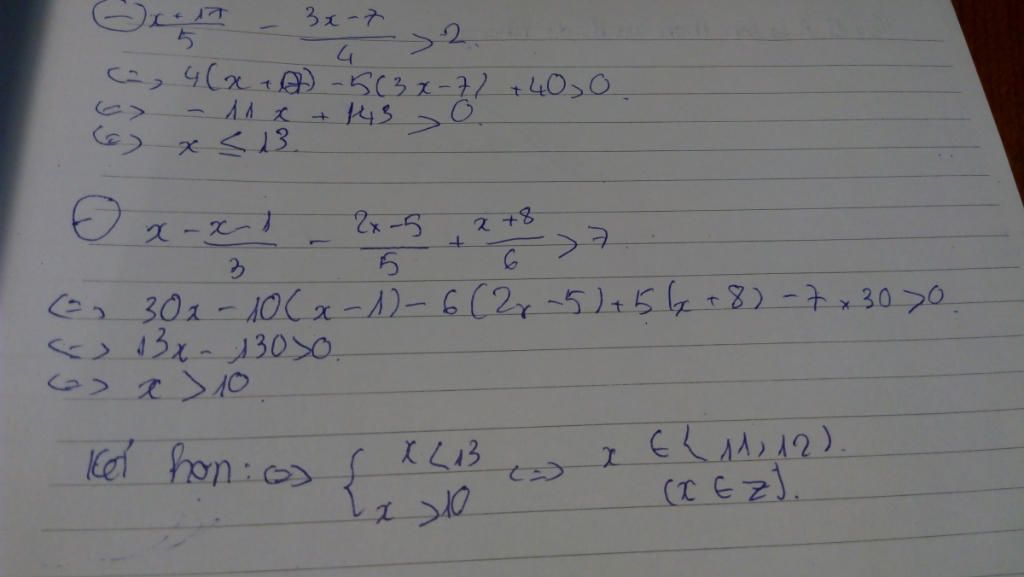 ⊖ x+17/5 - 3x-7/4 > 2.
<=> 4(x+17) - 5(3x-7) + 40 > 0.
<=> - 11x + 143 > 0.
<=> x ≤ 13.
⊖ x - x-1/3 - 2x-5/5 + x+8/6 > 7
<=> 30x - 10(x-1) - 6(2x-5) + 5(x+8) - 7 × 30 > 0.
<=> 13x - 130 > 0.
<=> x > 10.
Kết hợp: <=> { x < 13 x > 10 <=> x ∈ {11, 12}.
(x ∈ Z).